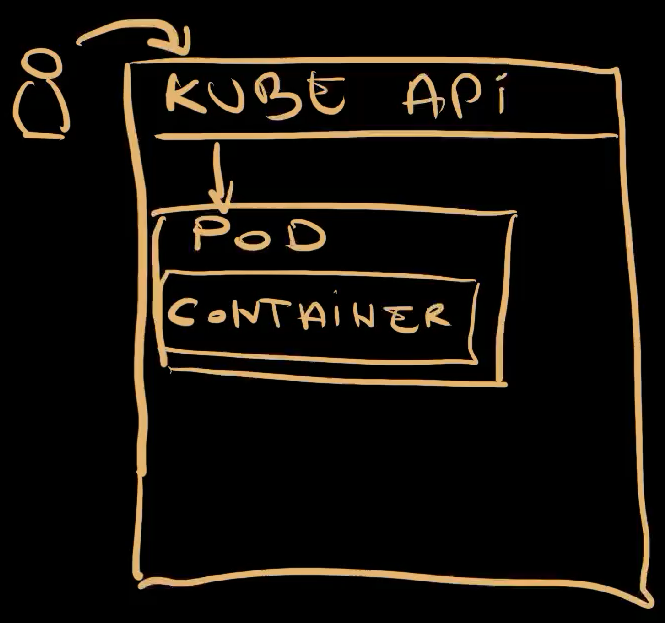 KUBE APi
POD
CONTAiNER